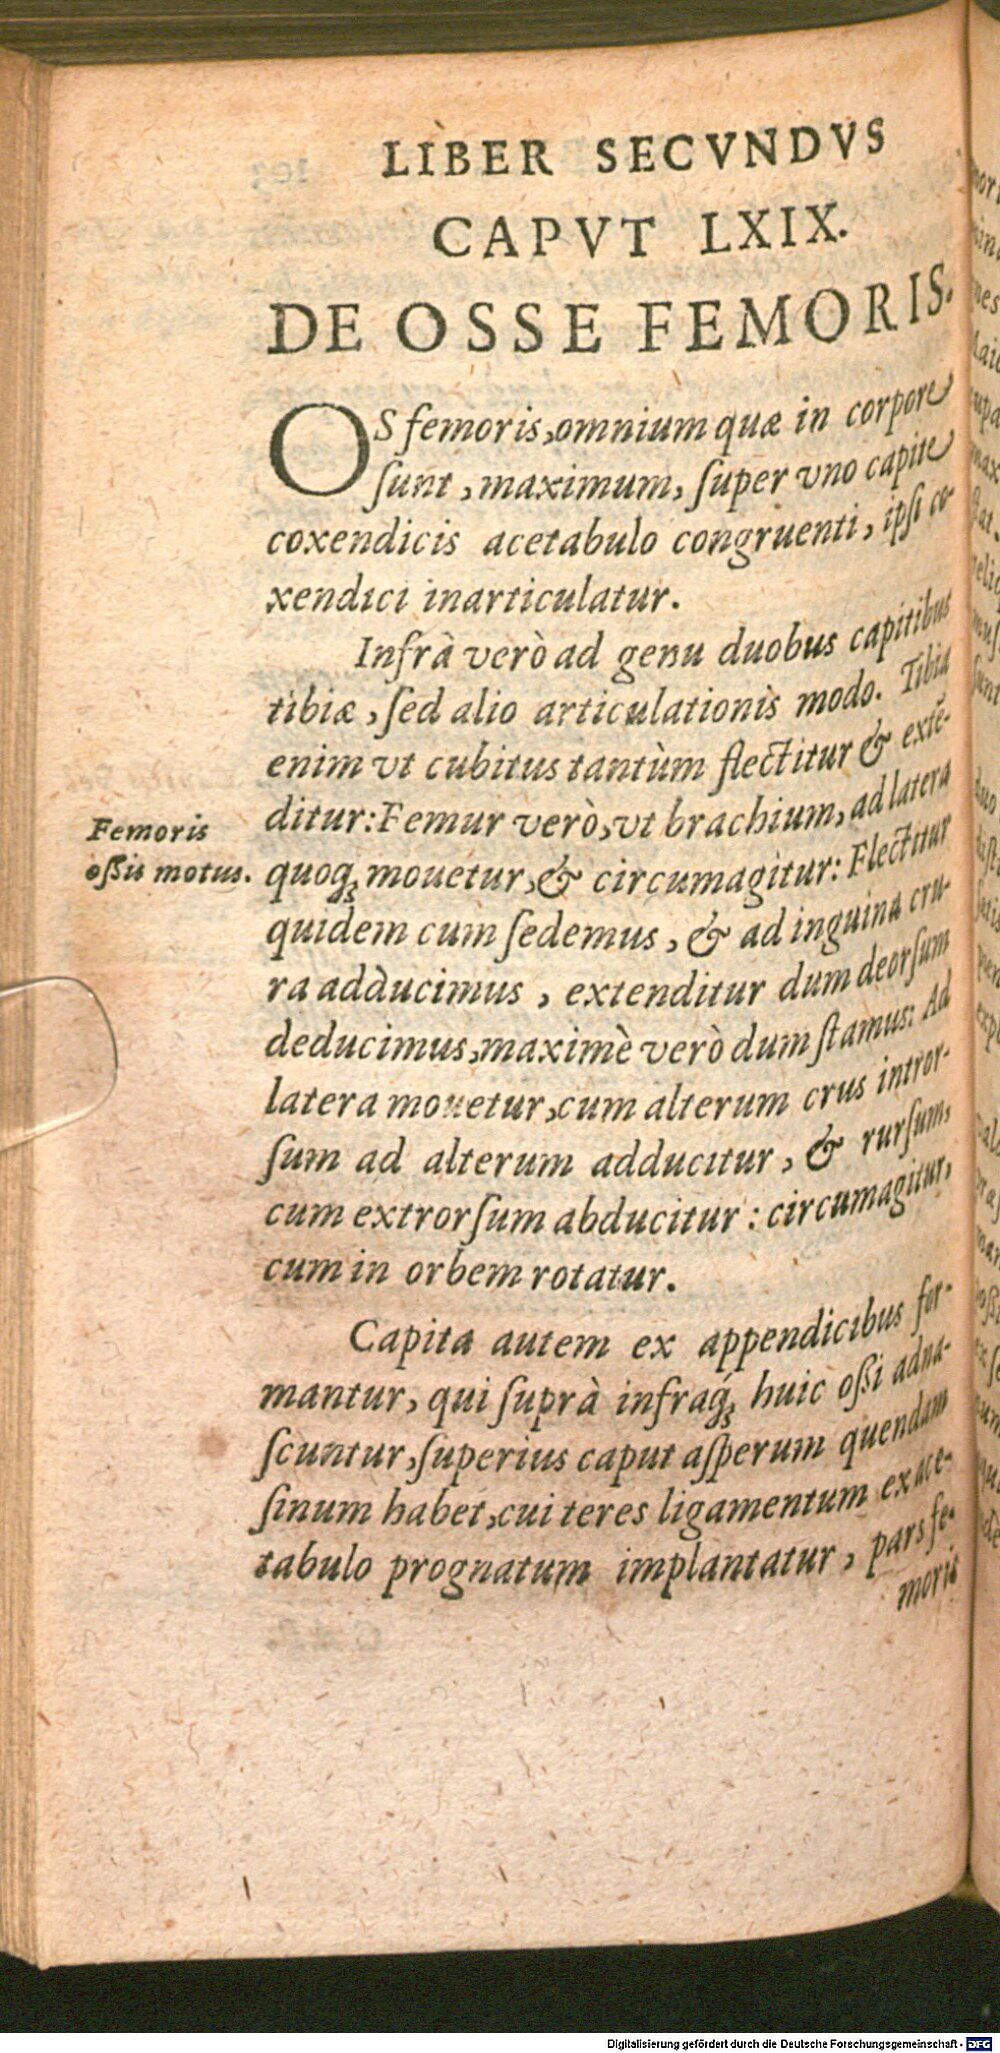 LIBER SECVNDVS
CAPVT LXIX.
DE OSSE FEMORIS.
OS femoris, omnium quæ in corpore
ſunt, maximum, ſuper vno capite
coxendicis acetabulo congruenti, ipſi co-
xendici inarticulatur.
Infrà verò ad genu duobus capitibus
tibiæ, ſed alio articulationis modo. Tibia
enim vt cubitus tantùm flectitur & extē-
ditur: Femur verò, vt brachium, ad latera
Femoris
oſsis motus.
quoq; mouetur, & circumagitur: Flectitur
quidem cum ſedemus, & ad inguina cru-
ra adducimus, extenditur dum deorſum
deducimus, maximè verò dum ſtamus: Ad
latera mouetur, cum alterum crus intror-
ſum ad alterum adducitur, & rurſum,
cum extrorſum abducitur: circumagitur,
cum in orbem rotatur.
Capita autem ex appendicibus for-
mantur, qui ſuprà infraq́; huic oſsi adna-
ſcuntur, ſuperius caput aſperum quendam
ſinum habet, cui teres ligamentum ex ace-
tabulo prognatum implantatur, pars fe-
moris
Digitalisierung gefördert durch die Deutsche Forschungsgemeinschaft - DFG